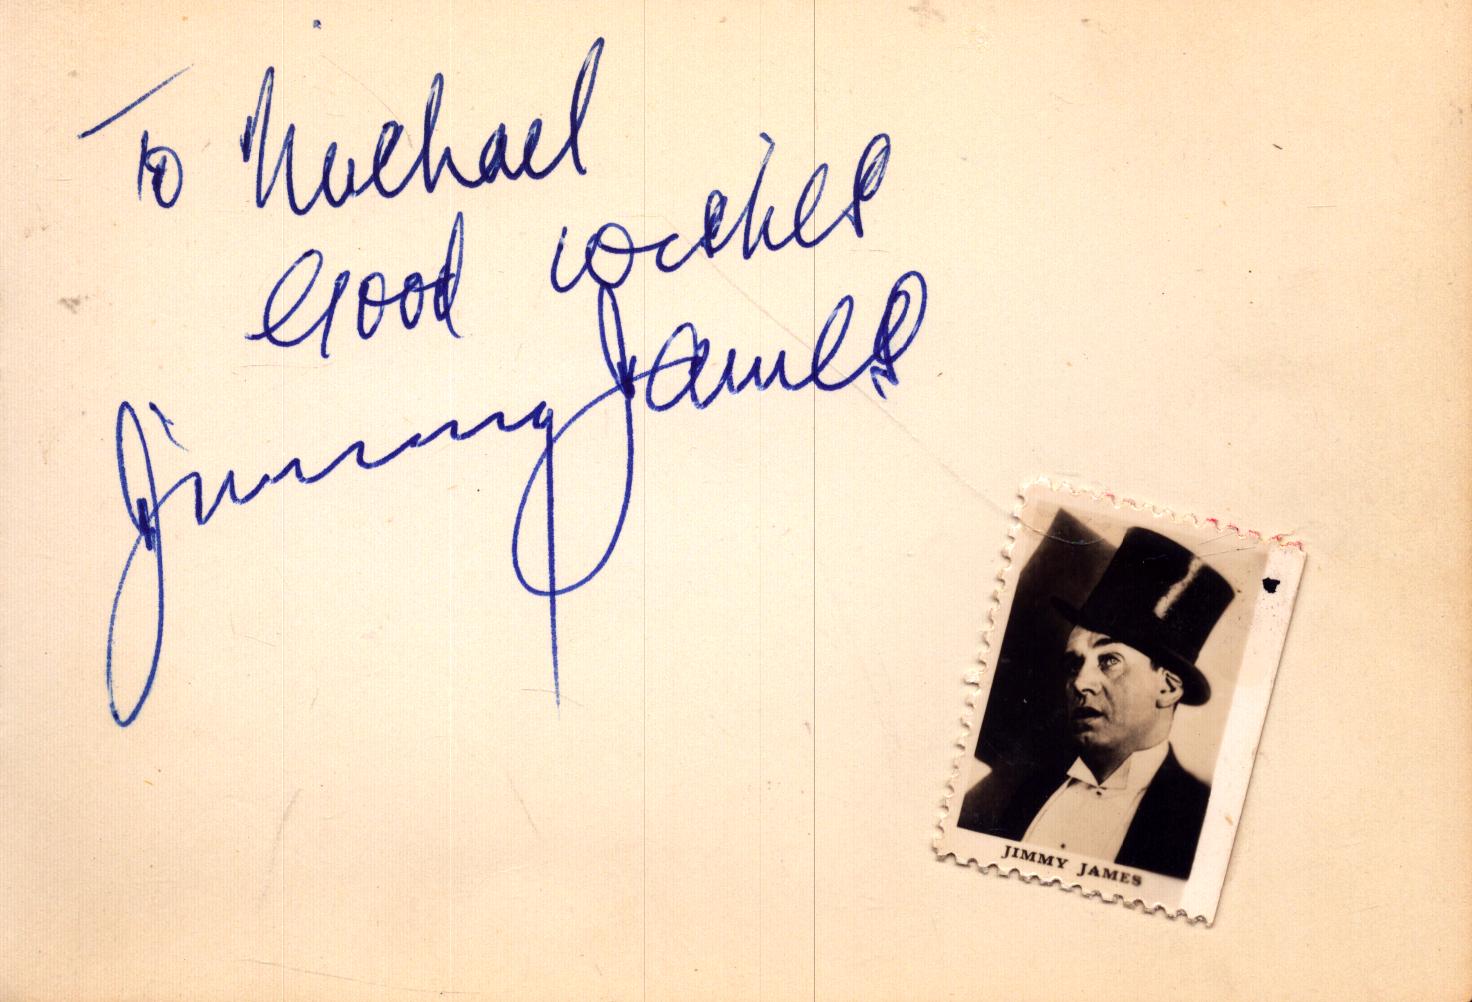 To Michael
Good wishes
Jimmy James
JIMMY JAMES